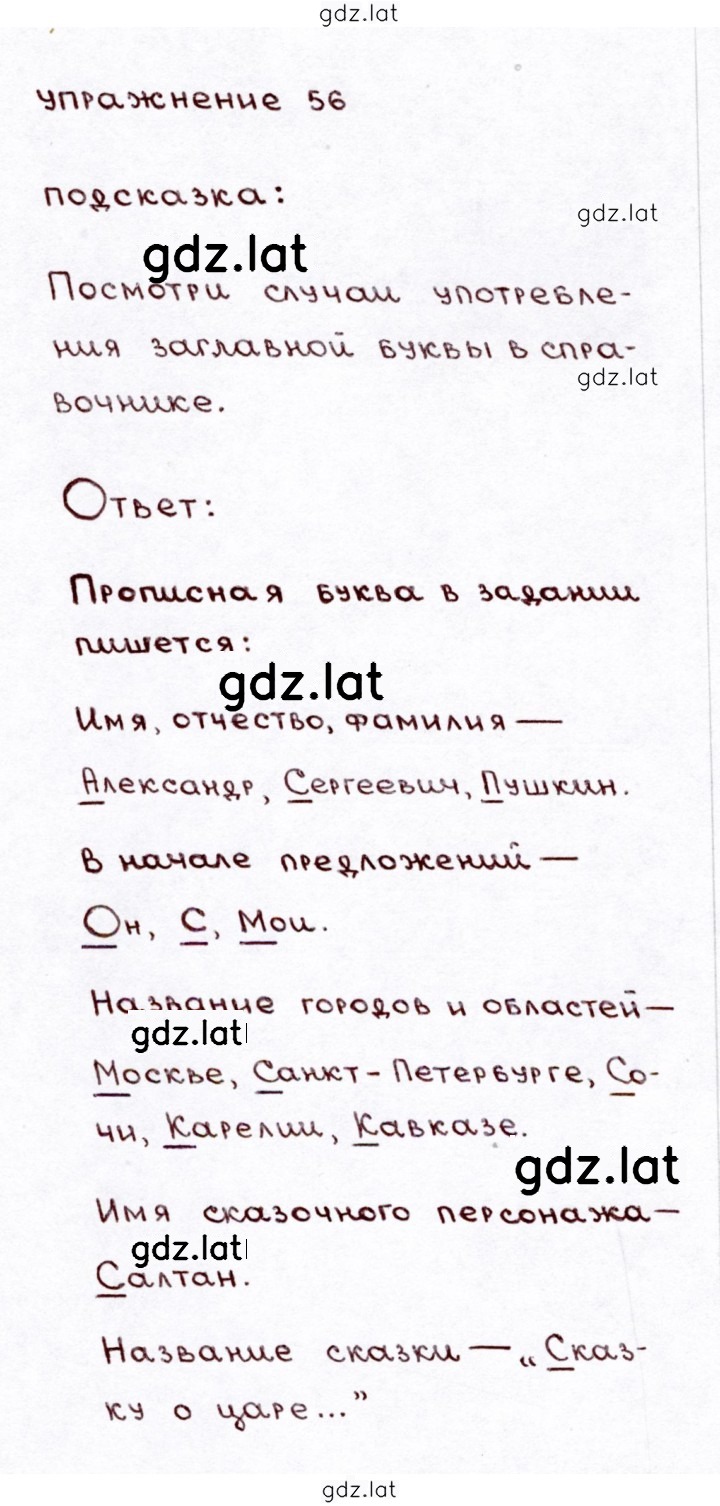 gdz.lat
упражнение 56
подсказка:
gdz.lat
gdz.lat
Посмотри случаи употребле-
ния заглавной буквы в спра-
gdz.lat
вочнике.
Ответ:
Прописная буква в задании
пишется:
gdz.lat
Имя, отчество, фамилия —
Александр, Сергеевич, Пушкин.
В начале предложений —
Он, С, Мои.
Название городов и областей—
gdz.lat
Москве, Санкт-Петербурге, Со-
чи, Карелии, Кавказе.
gdz.lat
Имя сказочного персонажа—
gdz.lat
Салтан.
Название сказки — „Сказ-
ку о царе..."
gdz.lat